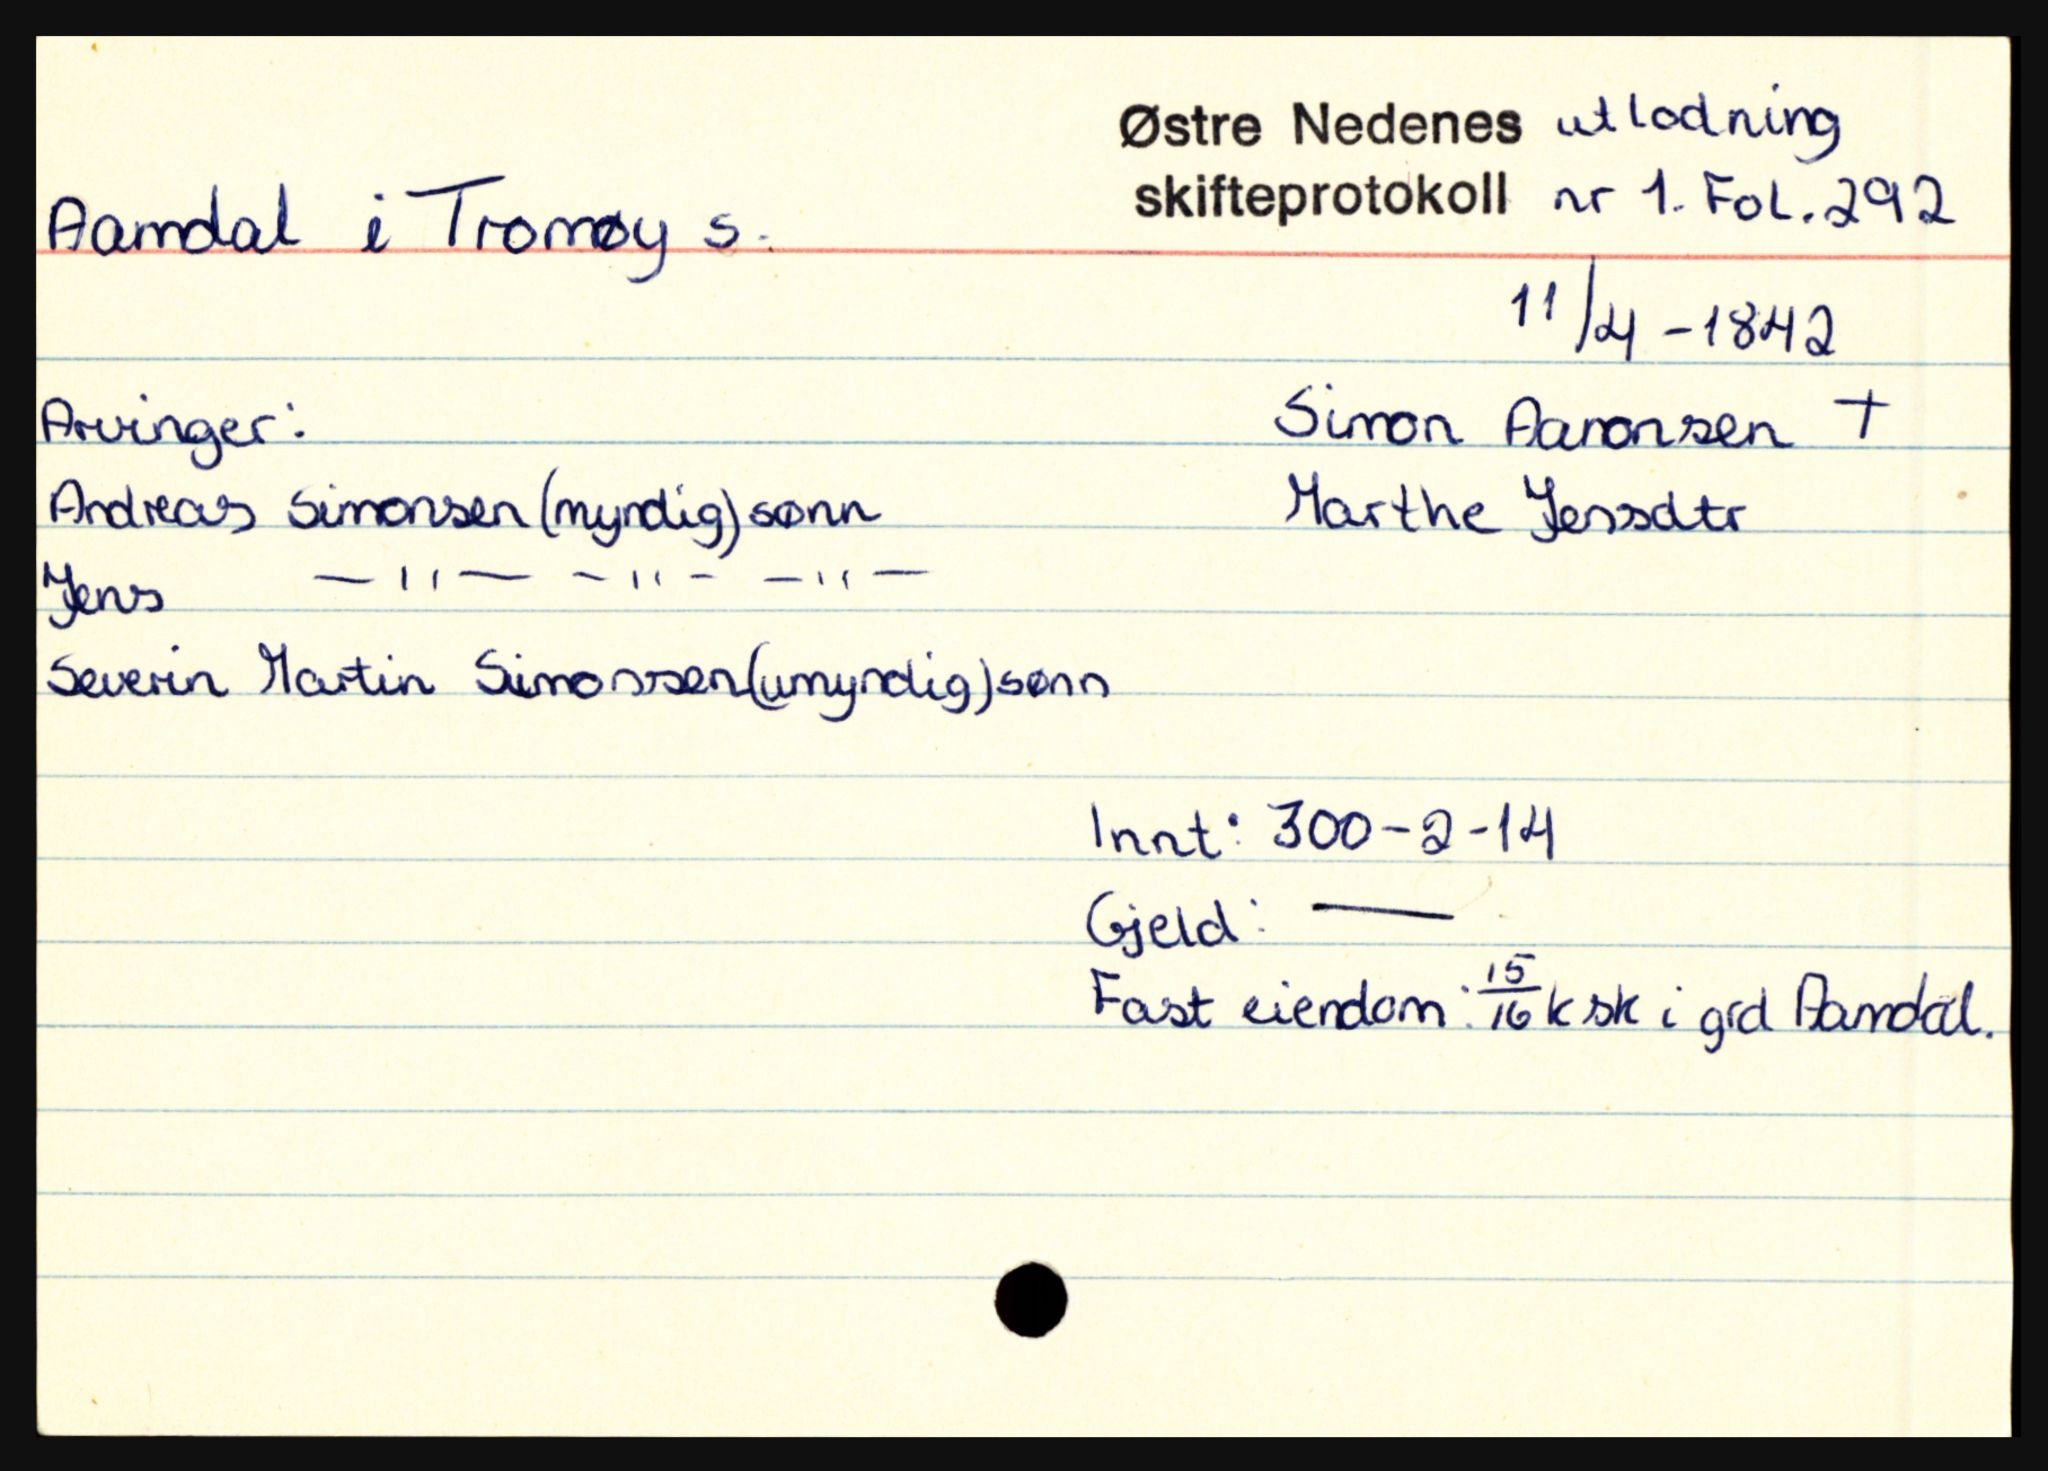 Østre Nedenes utlodning
skifteprotokoll nr 1. Fol. 292
Aamdal i Tromøy s.
11/4 - 1842
Arvinger: Simon Aanonsen +
Andreas Simonsen (myndig) sønn Marthe Jensdtr
Jens —"— —"— —"—
Severin Martin Simonsen (umyndig) sønn
Innt: 300-2-14
Gjeld: —
Fast eiendom: 15/16 k sk i grd Aamdal.